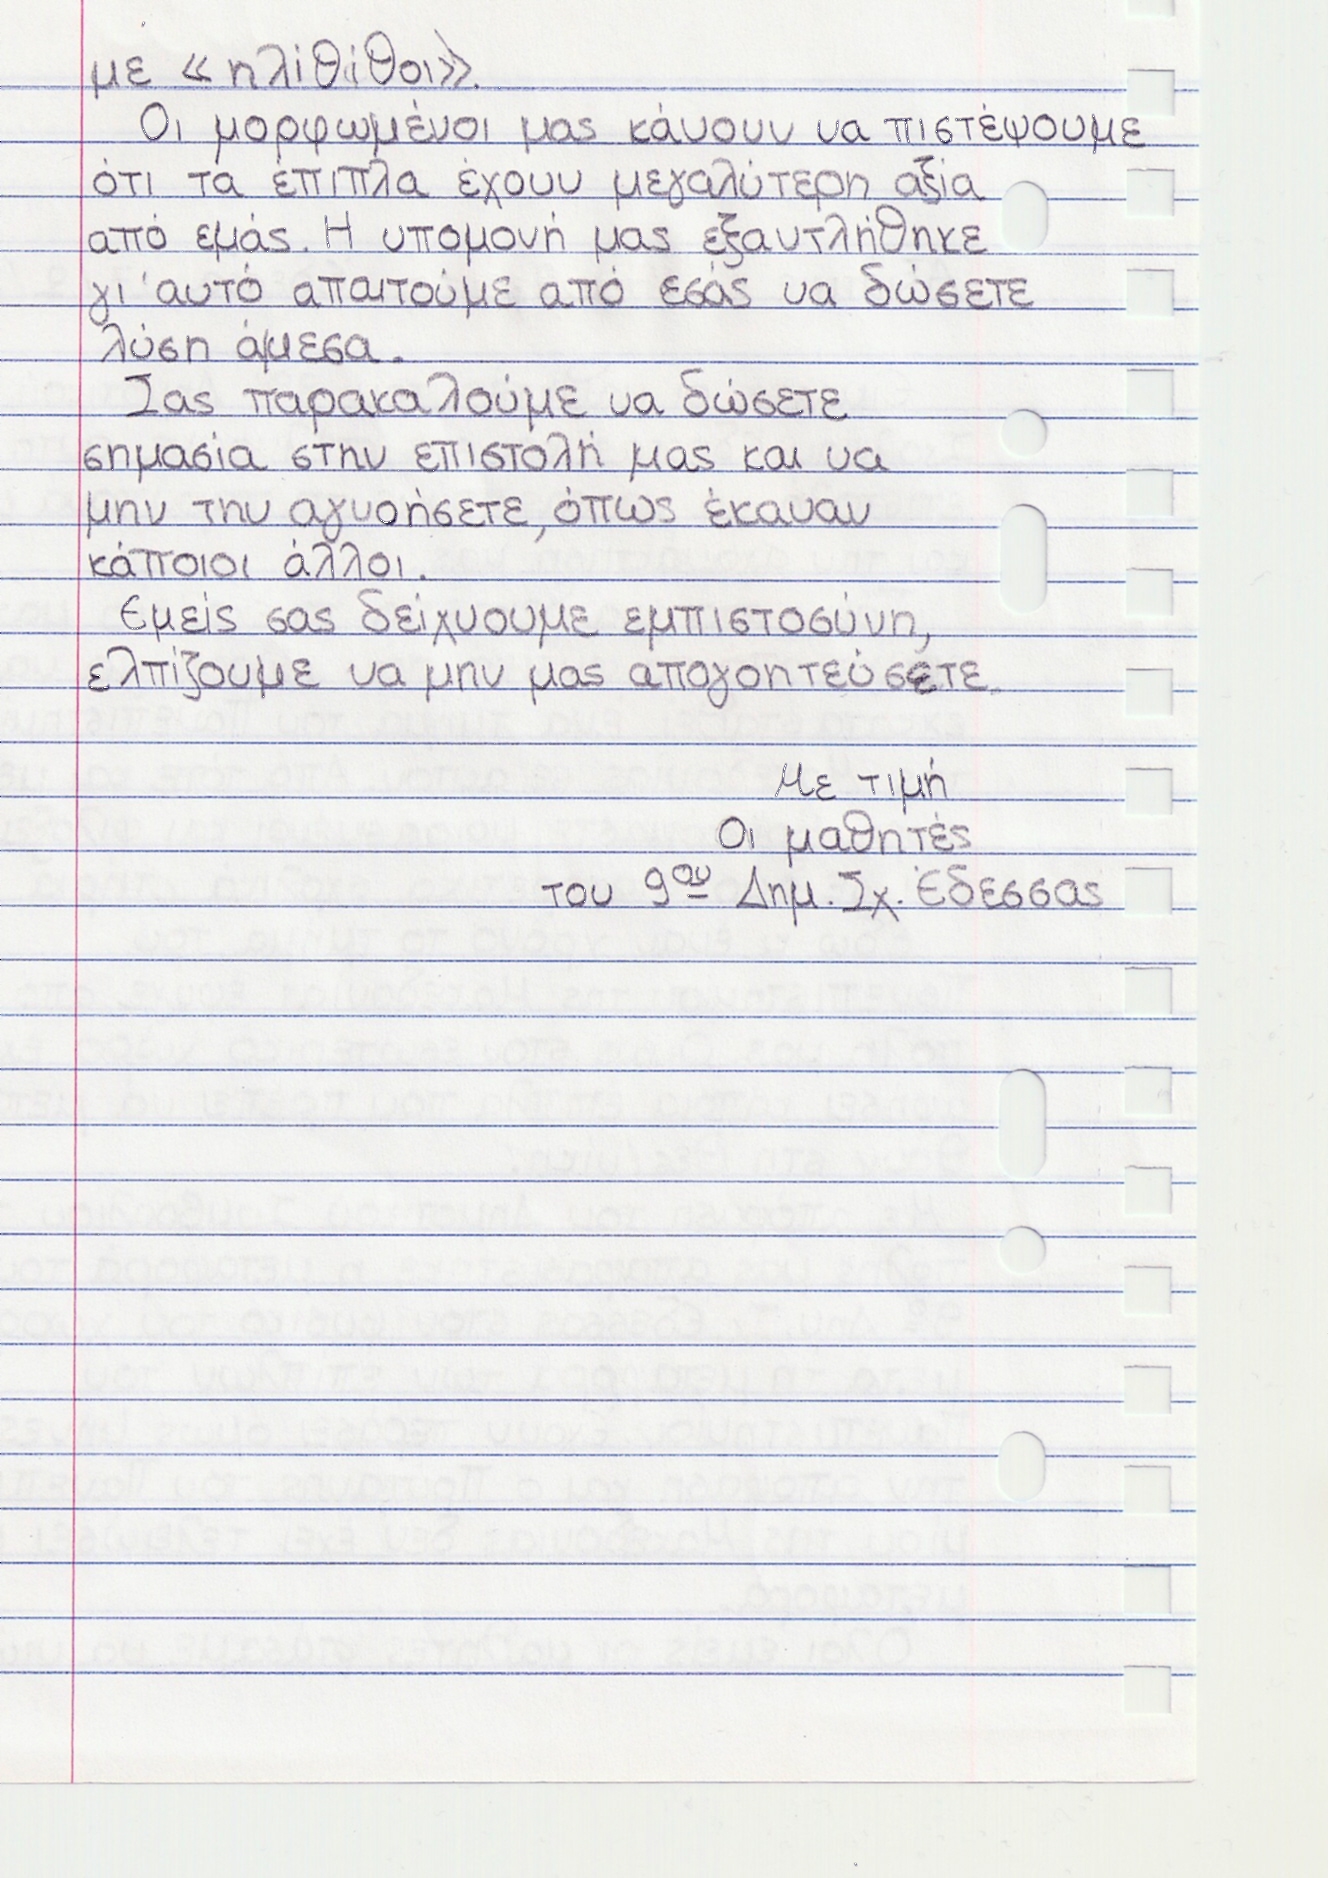 με «ηλίθιθοι».
Οι μορφωμένοι μας κάνουν να πιστέψουμε
ότι τα έπιπλα έχουν μεγαλύτερη αξία
από εμάς. Η υπομονή μας εξαντλήθηκε
γι'αυτό απαιτούμε από εσάς να δώσετε
λύση άμεσα.
Σας παρακαλούμε να δώσετε
σημασία στην επιστολή μας και να
μην την αγνοήσετε, όπως έκαναν
κάποιοι άλλοι.
Εμείς σας δείχνουμε εμπιστοσύνη,
ελπίζουμε να μην μας απογοητεύσετε.
Με τιμή
Οι μαθητές
του 9ου Δημ. Σχ. Έδεσσας